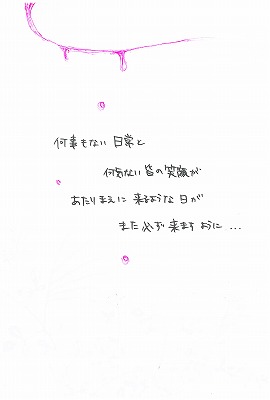 何事もない日常と
何気ない皆の笑顔が
あたりまえに来るような日が
また必ず来ますように...